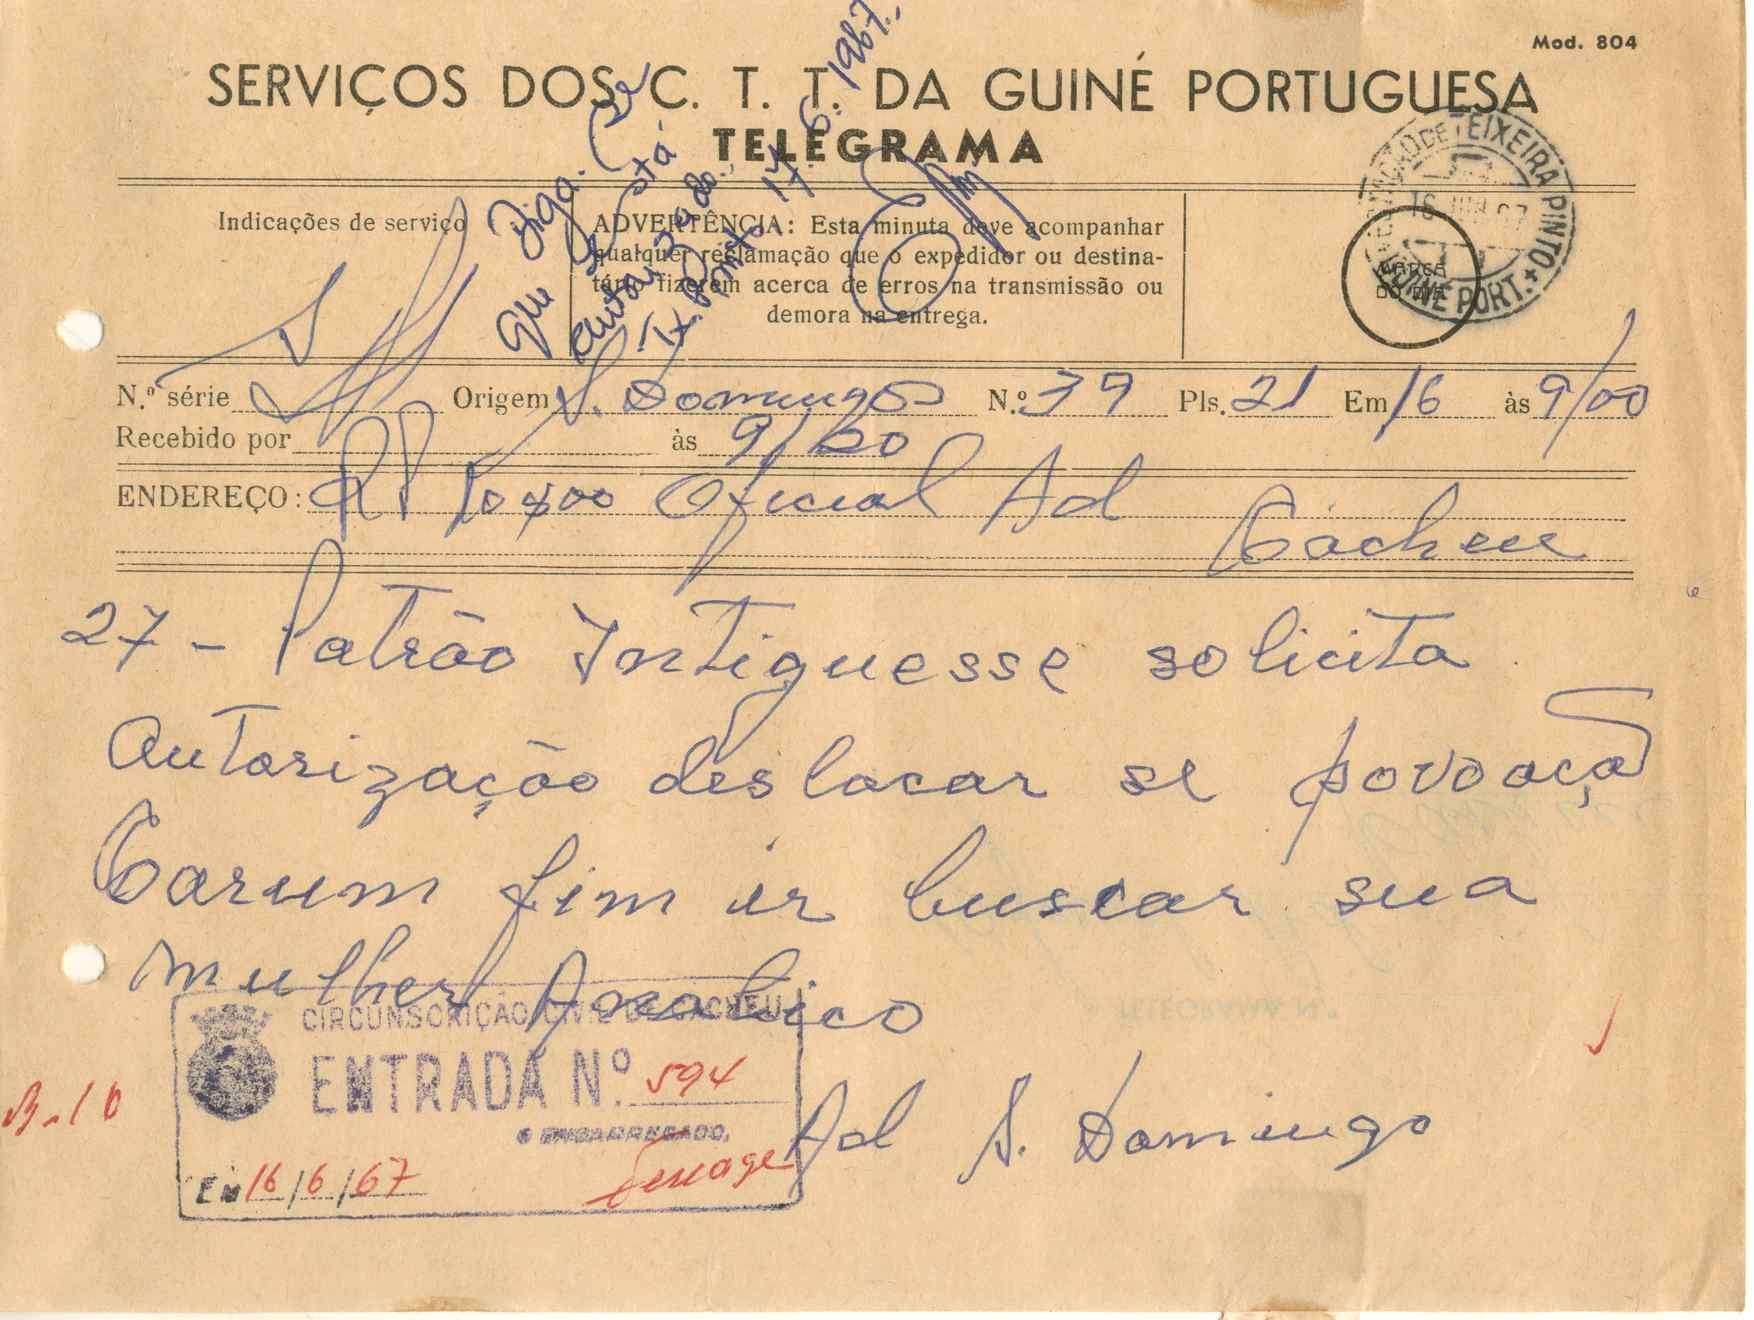 Mod. 804
SERVIÇOS DOS C. T. T. DA GUINÉ PORTUGUESA
TELEGRAMA
Diga-se
que está
autorizado.
17.6.1967.
ESTAÇÃO DE TEIXEIRA PINTO
16 JUN 67
GUINÉ PORT.
MARCA
DO DIA
Indicações de serviço
ADVERTÊNCIA: Esta minuta deve acompanhar
qualquer reclamação que o expedidor ou destina-
tário fizerem acerca de erros na transmissão ou
demora na entrega.
N.º série Origem S. Domingos N.º 39 Pls. 21 Em 16 às 9/00
Recebido por às 9/20
ENDEREÇO: RP 10$00 Oficial Ad
Cacheu
27 - Patrão Intiguesse solicita
autorização deslocar se povoação
Carum fim ir buscar sua
mulher
Ad S. Domingo
CIRCUNSCRIÇÃO CIVIL DE CACHEU
ENTRADA N.º 594
O ENCARREGADO,
EM 16/6/67
B-10